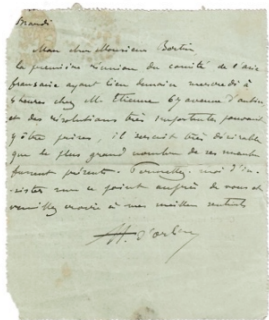 Mardi
Mon cher Monsieur Bertin
la première réunion du comité de l'asie
française ayant lieu demain mercredi à
heures chez M. Etienne avenue d'antin
et des résolutions très importantes pouvant
y être prises, il serait très désirable
que le plus grand nombre de ses membres
fussent présents. Permettez-moi d'in-
sister sur ce point auprès de vous et
veuillez croire à mes meilleurs sentiments